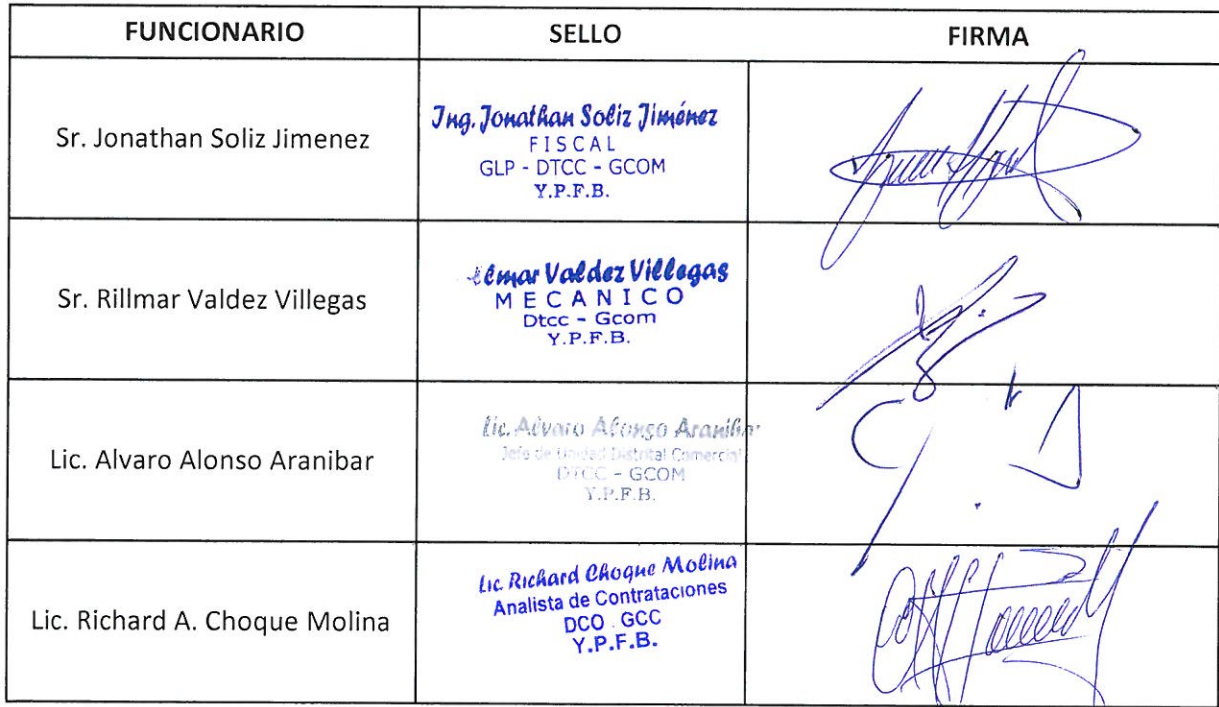 FUNCIONARIO SELLO FIRMA
Sr. Jonathan Soliz Jimenez
Ing. Jonathan Soliz Jiménez
FISCAL
GLP - DTCC - GCOM
Y.P.F.B.
Sr. Rillmar Valdez Villegas
Valdez Villegas
MECANICO
Dtcc - Gcom
Y.P.F.B.
Lic. Alvaro Alonso Aranibar
Lic. Alvaro Alonso Aranibar
Jefe de Unidad Distrital Comercial
DTCC - GCOM
Y.P.F.B.
Lic. Richard A. Choque Molina
Lic. Richard Choque Molina
Analista de Contrataciones
DCO . GCC
Y.P.F.B.